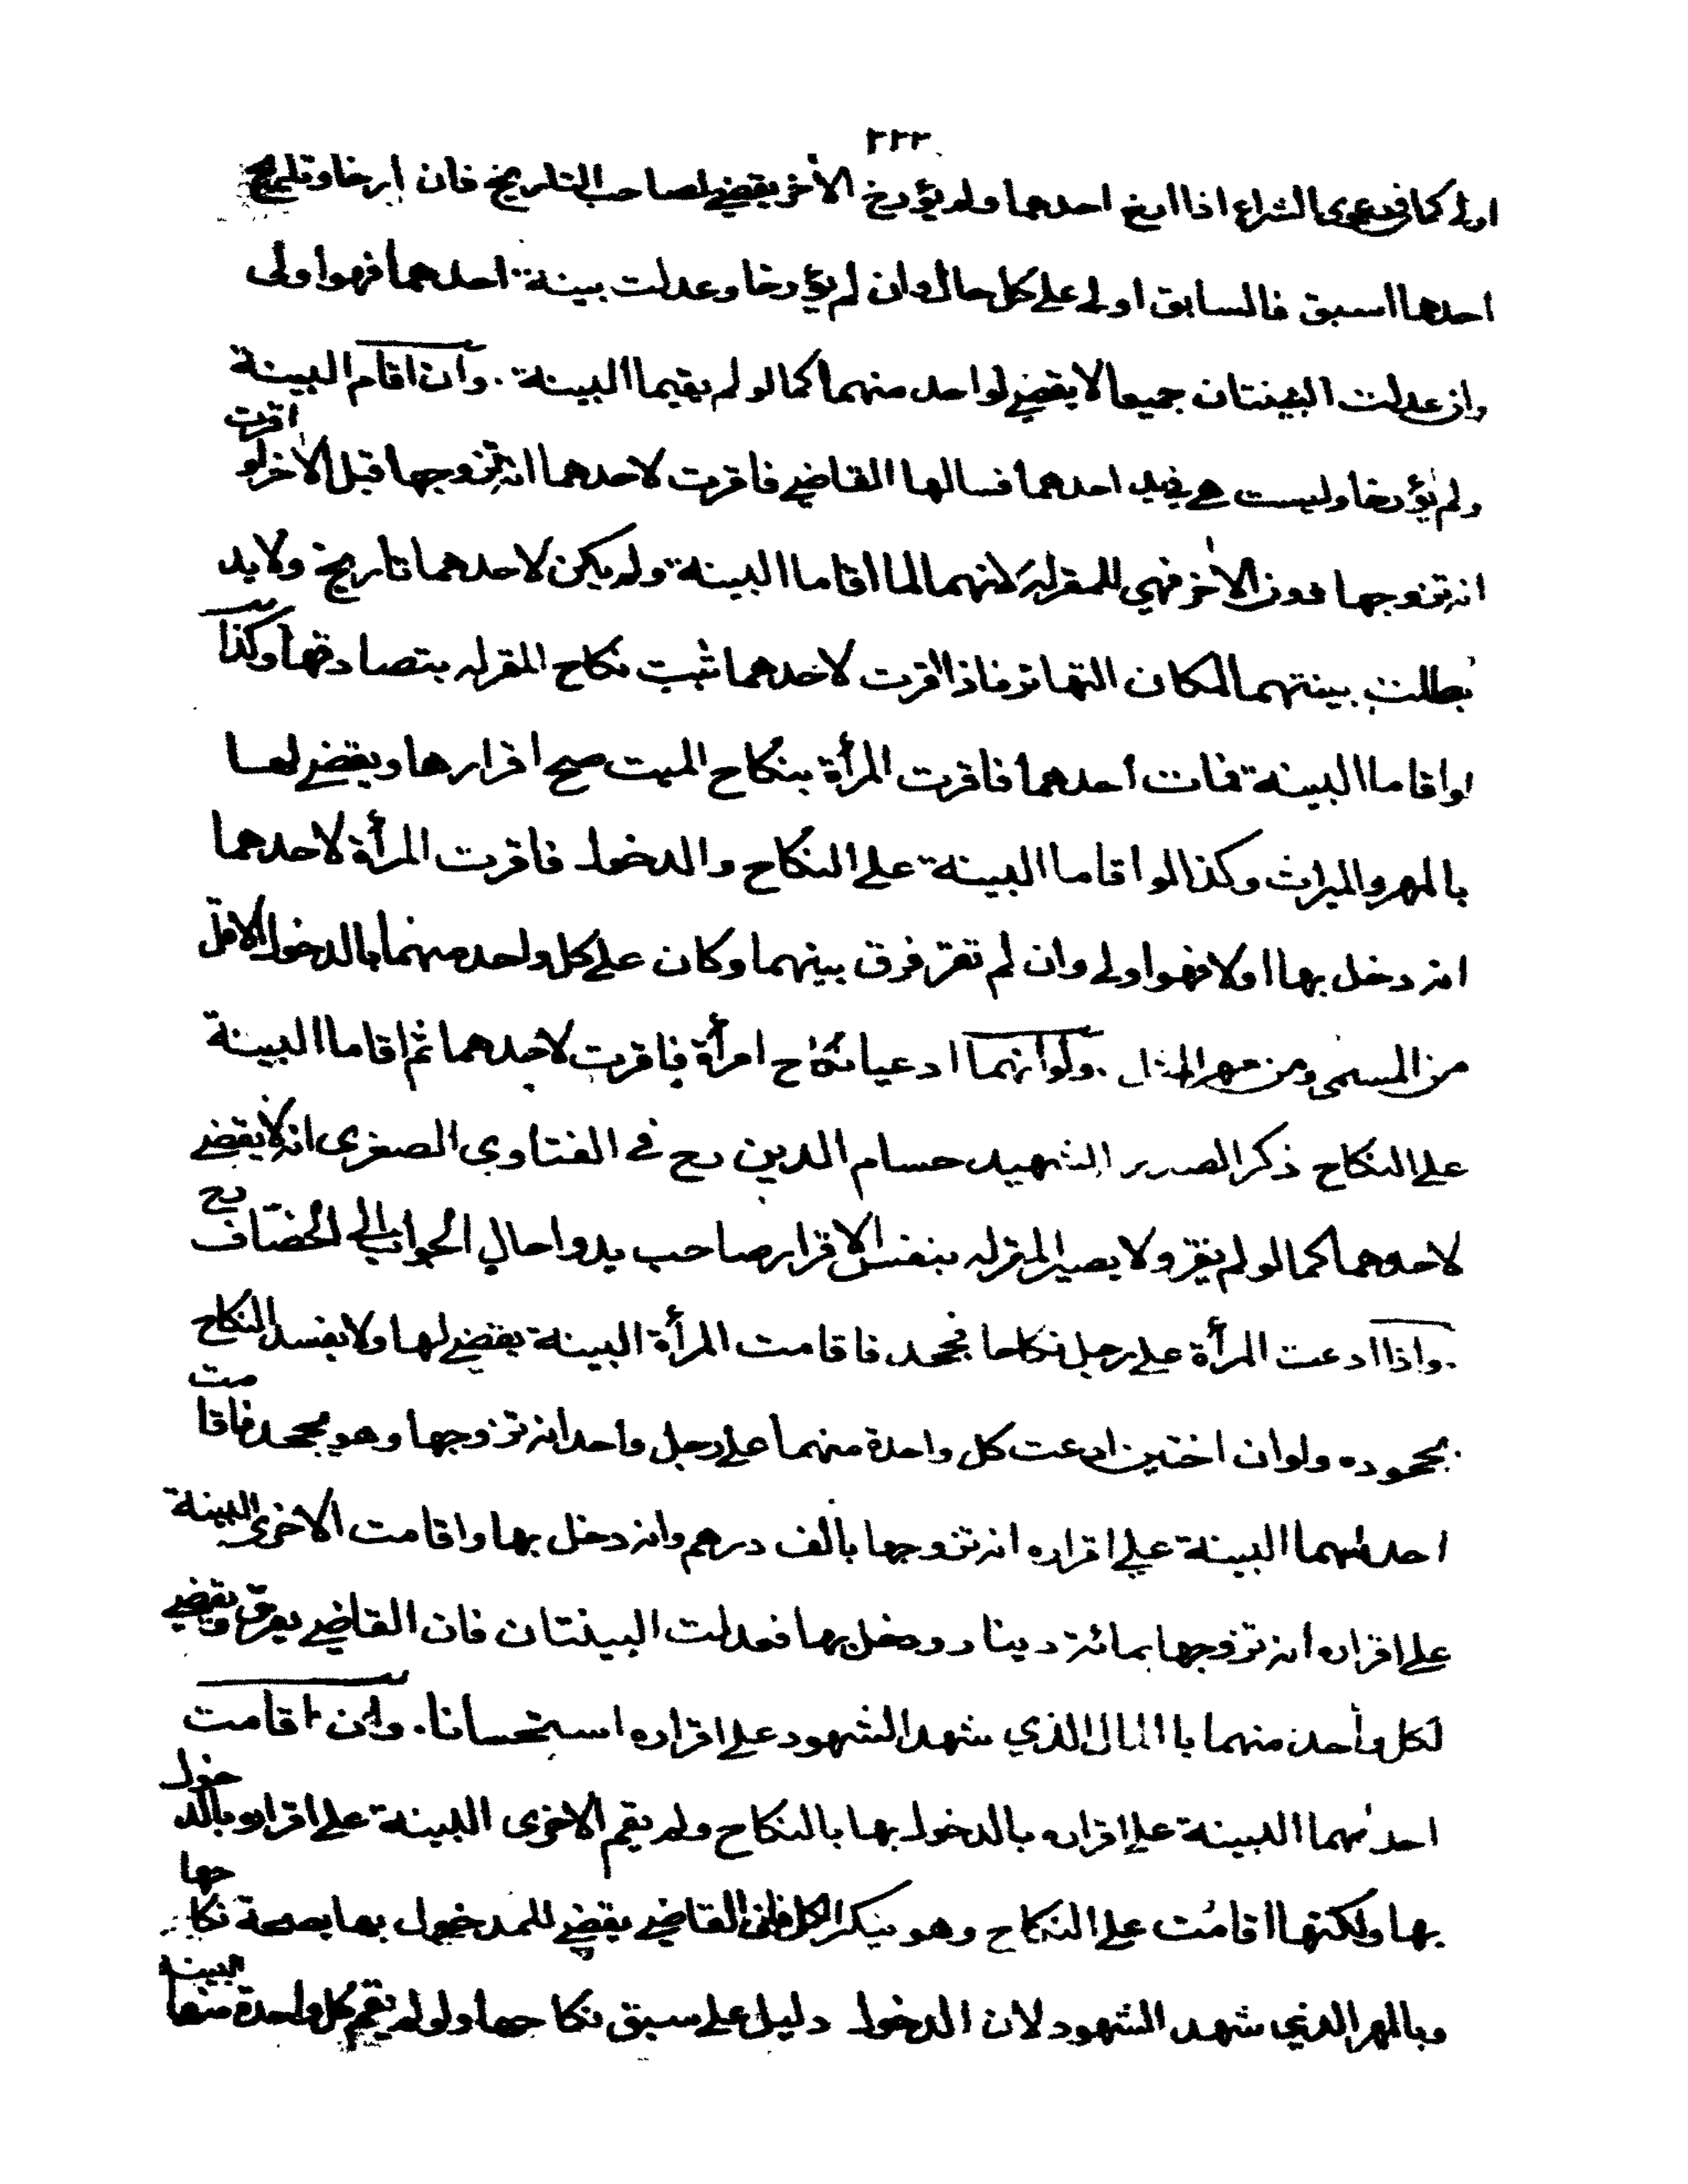 ٢٢٢
اولى كما في دعوى الشراء اذا ارخ احدهما ولم يؤرخ الآخر يقضي لصاحب التاريخ فان ارخا وتاريخ
احدهما اسبق فالسابق اولى على كل حال وان لم يؤرخا وعدلت بينة احدهما فهو اولى
وان عدلت البينتان جميعا لا يقضي لواحد منهما كما لو لم يقيما البينة . وان اقام البينة
ولم يؤرخا وليست هي في يد احدهما فسالها القاضي فاقرت لاحدهما انه تزوجها قبل الآخر او اقرت
انه تزوجها دون الآخر فهي للمقر له لانهما لما اقاما البينة ولم يكن لاحدهما تاريخ ولا يد
بطلت بينتهما لمكان التهاتر فاذا اقرت لاحدهما ثبت نكاح المقر له بتصادقهما وكذا
لو اقاما البينة فمات احدهما فاقرت المرأة بنكاح الميت صح اقرارها ويقضي لها
بالمهر والميراث وكذا لو اقاما البينة على النكاح والدخول فاقرت المرأة لاحدهما
انه دخل بها اولا فهو اولى وان لم تقر فرق بينهما وكان على كل واحد منهما بالدخول الاقل
من المسمى ومن مهر المثل . ولو انهما ادعيا نكاح امرأة فاقرت لاحدهما ثم اقاما البينة
على النكاح ذكر الصدر الشهيد حسام الدين رح في الفتاوى الصغرى انه لا يقضي
لاحدهما كما لو لم يقر ولا يصير المقر له بنفس الاقرار صاحب يد واحال الجواب الى الخصاف رح
. واذا ادعت المرأة على رجل نكاحا فجحد فاقامت المرأة البينة يقضي لها ولا يفسد النكاح
بجحوده ولو ان اختين ادعت كل واحدة منهما على رجل واحد انه تزوجها وهو يجحد فاقامت
احدٰىهما البينة على اقراره انه تزوجها بالف درهم وانه دخل بها واقامت الاخرى البينة
على اقراره انه تزوجها بمائة دينار ودخل بها فعدلت البينتان فان القاضي يفرق ويقضي
لكل واحدة منهما با المال الذي شهد الشهود على اقراره استحسانا . وان اقامت
احدٰىهما البينة على اقراره بالدخول بها بالنكاح ولم يقم الاخرى البينة على اقراره بالدخول
بها ولكنها اقامت على النكاح وهو ينكر الكل فان القاضي يقضي للمدخول بها بصحة نكاحها
وبالمهر الذي شهد الشهود لان الدخول دليل على سبق نكاحها ولو لم يقم كل واحدة منهما البينة